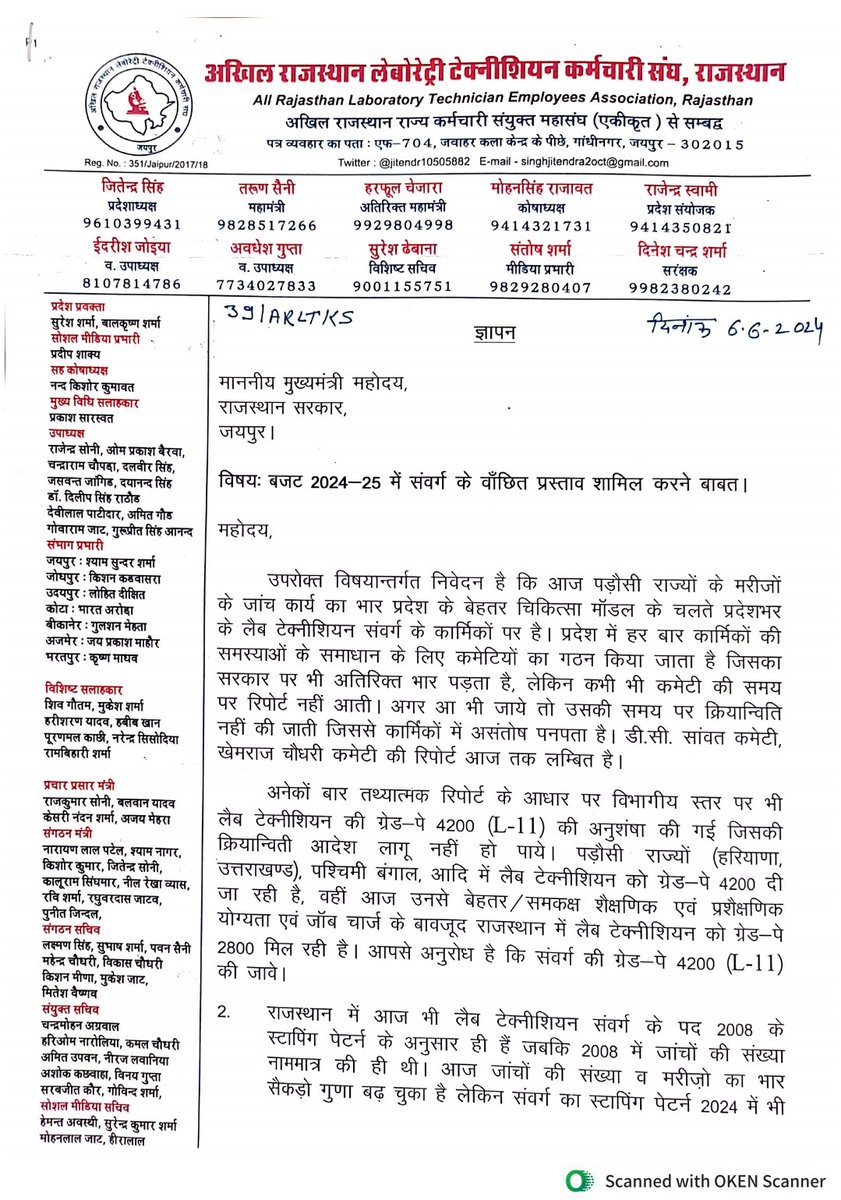 P1
अखिल राजस्थान लेबोरेट्री टेक्नीशियन कर्मचारी संघ
जयपुर
Reg. No. : 351/Jaipur/2017/18
अखिल राजस्थान लेबोरेट्री टेक्नीशियन कर्मचारी संघ, राजस्थान
All Rajasthan Laboratory Technician Employees Association, Rajasthan
अखिल राजस्थान राज्य कर्मचारी संयुक्त महासंघ (एकीकृत ) से सम्बद्व
पत्र व्यवहार का पता : एफ-704, जवाहर कला केन्द्र के पीछे, गांधीनगर, जयपुर - 302015
Twitter : @jitendr10505882 E-mail - singhjitendra2oct@gmail.com
जितेन्द्र सिंह
प्रदेशाध्यक्ष
9610399431
तरूण सैनी
महामंत्री
9828517266
हरफूल चेजारा
अतिरिक्त महामंत्री
9929804998
मोहनसिंह राजावत
कोषाध्यक्ष
9414321731
राजेन्द्र स्वामी
प्रदेश संयोजक
9414350821
ईदरीश जोइया
व. उपाध्यक्ष
8107814786
अवधेश गुप्ता
व. उपाध्यक्ष
7734027833
सुरेश ढेबाना
विशिष्ट सचिव
9001155751
संतोष शर्मा
मीडिया प्रभारी
9829280407
दिनेश चन्द्र शर्मा
सरंक्षक
9982380242
प्रदेश प्रवक्ता
सुरेश शर्मा, बालकृष्ण शर्मा
सोशल मीडिया प्रभारी
प्रदीप शाक्य
सह कोषाध्यक्ष
नन्द किशोर कुमावत
मुख्य विधि सलाहकार
प्रकाश सारस्वत
उपाध्यक्ष
राजेन्द्र सोनी, ओम प्रकाश बैरवा,
चन्द्राराम चौपडा, दलवीर सिंह,
जसवन्त जांगिड, दयानन्द सिंह
डॉ. दिलीप सिंह राठौड
देवीलाल पाटीदार, अमित गौड
गोवाराम जाट, गुरूप्रीत सिंह आनन्द
संभाग प्रभारी
जयपुर : श्याम सुन्दर शर्मा
जोधपुर : किशन कडवासरा
उदयपुर : लोहित दीक्षित
कोटा : भारत अरोडा
बीकानेर : गुलशन मेहता
अजमेर : जय प्रकाश माहौर
भरतपुर : कृष्ण माधव
विशिष्ट सलाहकार
शिव गौतम, मुकेश शर्मा
हरीशरण यादव, हबीब खान
पूरणमल काछी, नरेन्द्र सिसोदिया
रामबिहारी शर्मा
प्रचार प्रसार मंत्री
राजकुमार सोनी, बलवान यादव
केसरी नंदन शर्मा, अजय मेहरा
संगठन मंत्री
नारायण लाल पटेल, श्याम नागर,
किशोर कुमार, जितेन्द्र सोनी,
कालूराम सिंघमार, नील रेखा व्यास,
रवि शर्मा, रघुवरदास जाटव,
पुनीत जिन्दल,
संगठन सचिव
लक्ष्मण सिंह, सुभाष शर्मा, पवन सैनी
महेन्द्र चौधरी, विकास चौधरी
किशन मीणा, मुकेश जाट,
मितेश वैष्णव
संयुक्त सचिव
चन्द्रमोहन अग्रवाल
हरिओम नारोलिया, कमल चौधरी
अमित उपवन, नीरज लवानिया
अशोक कछवाहा, विनय गुप्ता
सरबजीत कौर, गोविन्द शर्मा,
सोशल मीडिया सचिव
हेमन्त अवस्थी, सुरेन्द्र कुमार शर्मा
मोहनलाल जाट, हीरालाल
39/ARLTKS
ज्ञापन
दिनांक 6.6-2024
माननीय मुख्यमंत्री महोदय,
राजस्थान सरकार,
जयपुर।
विषयः बजट 2024–25 में संवर्ग के वाँछित प्रस्ताव शामिल करने बाबत।
महोदय,
उपरोक्त विषयान्तर्गत निवेदन है कि आज पड़ौसी राज्यों के मरीजों
के जांच कार्य का भार प्रदेश के बेहतर चिकित्सा मॉडल के चलते प्रदेशभर
के लैब टेक्नीशियन संवर्ग के कार्मिकों पर है। प्रदेश में हर बार कार्मिकों की
समस्याओं के समाधान के लिए कमेटियों का गठन किया जाता है जिसका
सरकार पर भी अतिरिक्त भार पड़ता है, लेकिन कभी भी कमेटी की समय
पर रिपोर्ट नहीं आती। अगर आ भी जाये तो उसकी समय पर क्रियान्विति
नहीं की जाती जिससे कार्मिकों में असंतोष पनपता है। डी.सी. सांवत कमेटी,
खेमराज चौधरी कमेटी की रिपोर्ट आज तक लम्बित है।
अनेकों बार तथ्यात्मक रिपोर्ट के आधार पर विभागीय स्तर पर भी
लैब टेक्नीशियन की ग्रेड–पे 4200 (L-11) की अनुशंषा की गई जिसकी
क्रियान्विती आदेश लागू नहीं हो पाये। पड़ौसी राज्यों (हरियाणा,
उत्तराखण्ड), पश्चिमी बंगाल, आदि में लैब टेक्नीशियन को ग्रेड–पे 4200 दी
जा रही है, वहीं आज उनसे बेहतर/समकक्ष शैक्षणिक एवं प्रशैक्षणिक
योग्यता एवं जॉब चार्ज के बावजूद राजस्थान में लैब टेक्नीशियन को ग्रेड–पे
2800 मिल रही है। आपसे अनुरोध है कि संवर्ग की ग्रेड–पे 4200 (L-11)
की जावे।
2. राजस्थान में आज भी लैब टेक्नीशियन संवर्ग के पद 2008 के
स्टापिंग पेटर्न के अनुसार ही हैं जबकि 2008 में जांचों की संख्या
नाममात्र की ही थी। आज जांचों की संख्या व मरीज़ो का भार
सैकड़ो गुणा बढ़ चुका है लेकिन संवर्ग का स्टापिंग पेटर्न 2024 में भी
Scanned with OKEN Scanner